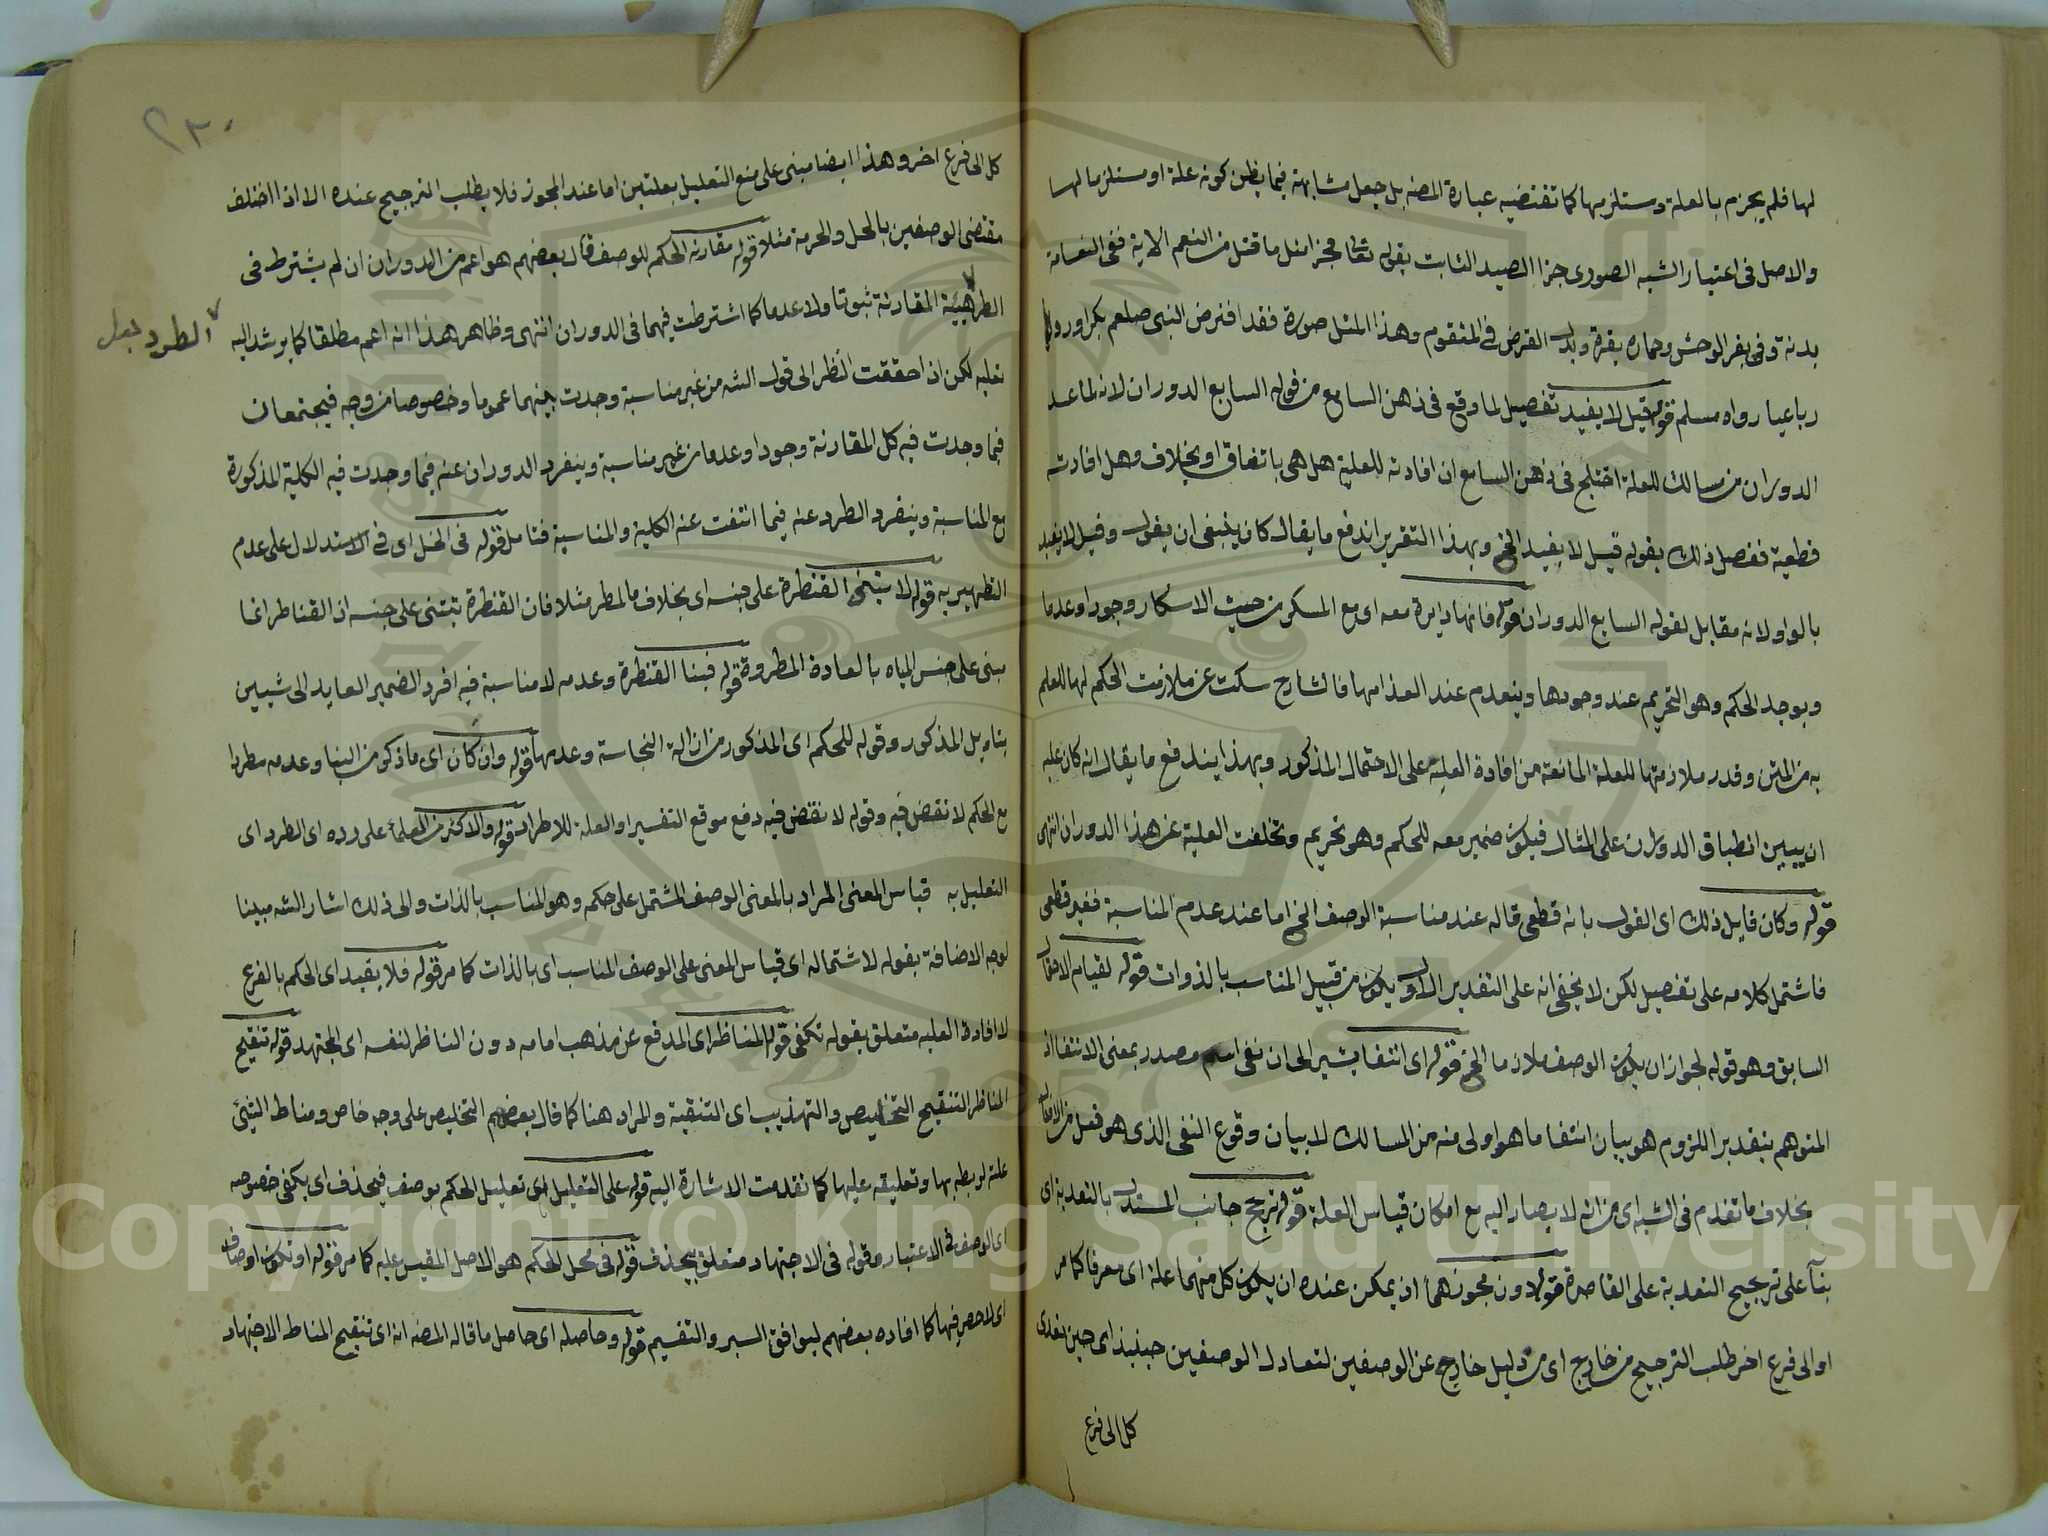 لها فلم يجزم بالعلة ومستلزمها كما تقتضيه عبارة المصنه بل جعل مشابهة فيما يظن كونه علة او مستلزما لها
والاصل في اعتبار الشبه الصوري جزا الصيد الثابت بقوله تعالى فجزا مثل ما قتل من النعم الاية ففي النعامة
بدنة وفي بقر الوحش وحماره بقرة وبدل القرض في المتقوم وهذا المثل صورة فقد اقترض النبي صلعم بكرا ورد
رباعيا رواه مسلم قوله قيل لا يفيد تفصيل لما وقع في ذهن السامع من قوله السابع الدوران لانه لما عد
الدوران من مسالك العلة اختلج في ذهن السامع ان افادته للعلية هل هي باتفاق او بخلاف وهل افادته
قطعية ففصل ذلك بقوله قيل لا يفيد الخ وبهذا التقرير اندفع ما يقال كان ينبغي ان يقول وقيل لا يفيد
بالواو لانه مقابل لقوله السابع الدوران قوله فانها دايرة معه اي مع المسكر من حيث الاسكار وجودا وعدما
ويوجد الحكم وهو التحريم عند وجودها وينعدم عند انعدامها فالشارح سكت عن ملازمت الحكم لها للعلم
به من المتن وقدر ملازمتها للعلة المانعة من افادة العلية على الاحتمال المذكور وبهذا يندفع ما يقال انه كان عليه
ان يبين انطباق الدوران على المثال فيكون ضمير معه للحكم وهو تحريم وتخلفت العلية عن هذا الدوران انتهى
قوله وكان قايل ذلك اي القول بانه قطعي قاله عند مناسبة الوصف الخ اما عند عدم المناسبة فغير قطعي
فاشتمل كلامه على تفصيل لكن لا يخفى انه على التقدير الاول يكون من قبيل المناسب بالذوات قوله لقيام الاحتمال
السابق وهو قوله لجواز ان يكون الوصف ملازما الخ قوله اي انتفا يشير الى ان نفي اسم مصدر بمعنى الانتفا اذ
المتوهم بتقدير اللزوم هو بيان انتفا ما هو اولى منه من المسالك لا بيان وقوع النفي الذي هو فعل من الافعال
بخلاف ما تقدم في الشبه اي من انه لا يصار اليه مع امكان قياس العلة قوله ترجح جانب المستدل بالتعدية اي
بنآ على ترجيح التعدية على القاصرة قوله دون مجوزهما اذ يمكن عنده ان يكون كل منهما علة اي معرفا كما مر
او الى فرع اخر طلب الترجيح من خارج اي من دليل خارج عن الوصفين لتعادل الوصفين حينيذ اي حين تعدى
كل الى فرع
٢٣٠
كل الى فرع اخر وهذا ايضا مبني على منع التعليل بعلتين اما عند المجوز فلا يطلب الترجيح عنده الا اذا اختلف
مقتضى الوصفين بالحل والحرمة مثلا قوله مقارنة الحكم للوصف قال بعضهم هو اعم من الدوران ان لم يشترط في
الطر المقارنة ثبوتا ولا عدما كما اشترطت فيهما في الدوران انتهى وظاهر هذا انه اعم مطلقا كما يرشد اليه
الطرد
تعليه لكن اذا حققت النظر الى قول الشه من غير مناسبة وجدت بينهما عموما وخصوصا من وجه فيجتمعان
فيما وجدت فيه كل المقارنة وجودا وعدما من غير مناسبة وينفرد الدوران عنه فيما وجدت فيه الكلية المذكورة
مع المناسبة وينفرد الطرد عنه فيما انتفت عنه الكلية والمناسبة فتامل قوله في الخل اي في الاستدلال على عدم
التطهير به قوله لا تبتنى القنطرة على جنسه اي بخلاف ما المطر مثلا فان القنطرة تبتنى على جنسه اذ القناطر انما
تبنى على جنس المياه بالعادة المطروة قوله فبنا القنطرة وعدمه لا مناسبة فيه افرد الضمير العايد الى شيين
بتاويل المذكور وقوله للحكم اي المذكور من ازالة النجاسة وعدمها قوله وان كان اي ما ذكر من البنا وعدمه مطردا
مع الحكم لا نقض فيه وقوله لا نقض فيه دفع موقع التفسير او العلة للاطراد قوله والاكثر من العلمآ على رده اي الطرد اي
التعليل به قياس المعنى المراد بالمعنى الوصف المشتمل على حكمه وهو المناسب بالذات والى ذلك اشار الشه مبينا
لوجه الاضافة بقوله لاشتماله اي قياس المعنى على الوصف المناسب اي بالذات كما مر قوله فلا يفيد اي الحكم بالفرع
لا افادة العليه متعلق بقوله تكفى قوله المناظر اي المدفع عن مذهب امامه دون الناظر لنفسه اي المجتهد قوله تنقيح
المناظر التنقيح التخليص والتهذيب اي التنقية والمراد هنا كما قال بعضهم التخليص على وجه خاص ومناط الشيئ
علته لربطه بها وتعليقه عليها كما تقدمت الاشارة اليه قوله على التعليل اي تعليل الحكم بوصف فيحذف اي يكفى خصوصه
اي الوصف في الاعتبار وقوله في الاجتهاد متعلق بيحذف قوله في محل الحكم هو الاصل المقيس عليه كما مر قوله او تكون اوصاف
اي لاحصر فيها كما افاده بعضهم ليوافق السبر والتقسيم قوله وحاصله اي حاصل ما قاله المصنه انه اي تنقيح المناط الاجتهاد
Copyright © King Saud University